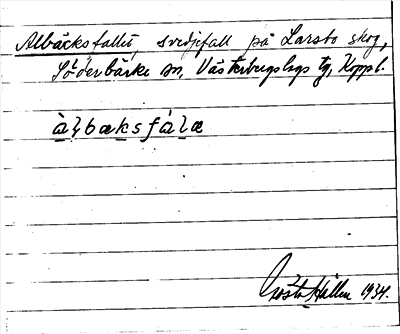 Albäcksfallet, svedjefall på Larsbo skog,
Söderbärke sn, Västerbergslags tg, Koppl.
àl̥bæksfálæ
Gösta Hallén 1934.